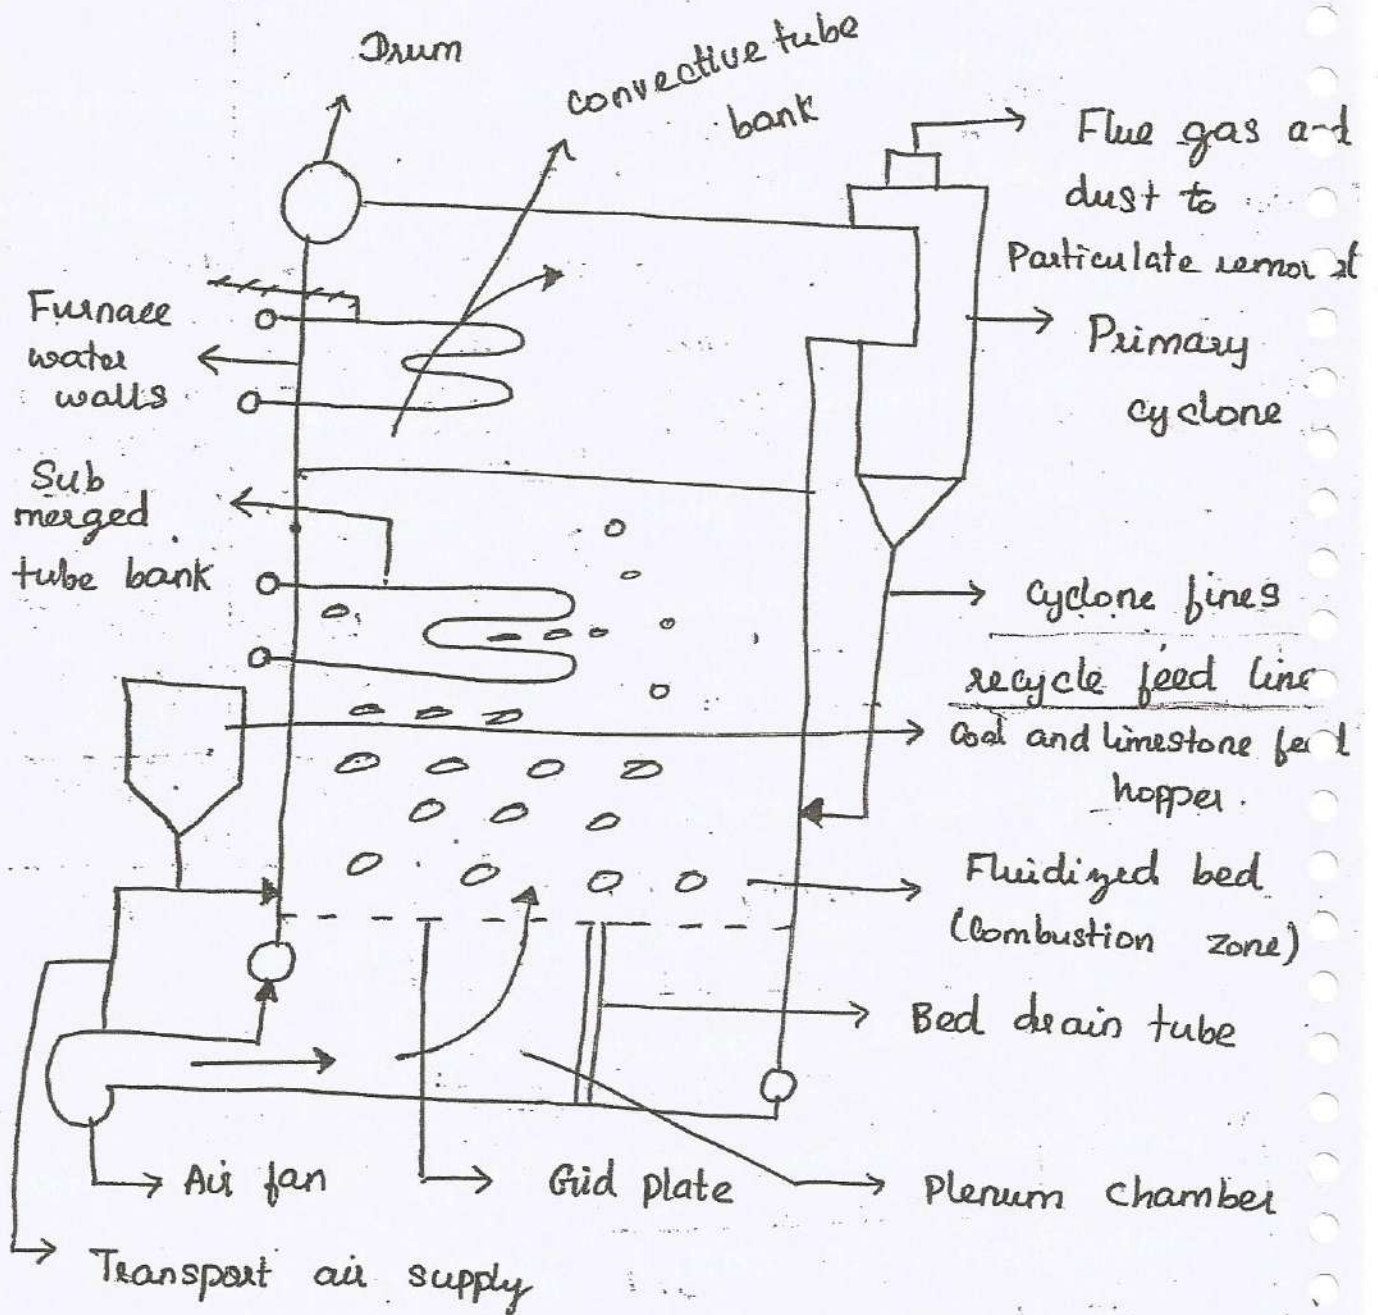 Drum
convective tube
bank
Flue gas and
dust to
Particulate removal
Furnace
water
walls
Primary
cyclone
Sub
merged
tube bank
cyclone fines
recycle feed line
Coal and limestone feed
hopper.
Fluidized bed
(Combustion zone)
Bed drain tube
Air fan
Grid plate
Plenum chamber
Transport air supply